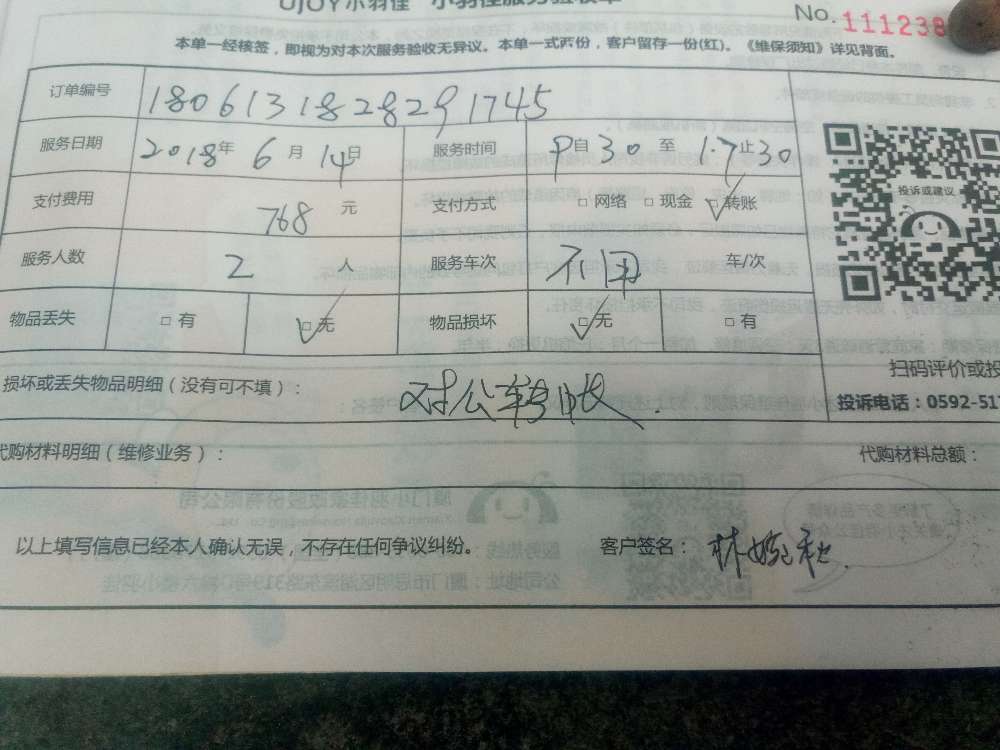 UJOY小羽佳 小羽佳服务验收单
No. 111238
本单一经核签，即视为对本次服务验收无异议。本单一式两份，客户留存一份(红)。《维保须知》详见背面。
订单编号 1806131828291745
服务日期 2018年 6月 14日 服务时间 自 30 至 17止30
支付费用 768 元 支付方式 □ 网络 □ 现金 □ 转账
服务人数 2 人 服务车次 不用 车/次
物品丢失 □ 有 □ 无 物品损坏 □ 无 □ 有
投诉或建议
扫码评价或投
损坏或丢失物品明细（没有可不填）： 对公转帐.
投诉电话：0592-517
代购材料明细（维修业务）： 代购材料总额：
以上填写信息已经本人确认无误，不存在任何争议纠纷。 客户签名： 林婉秋.